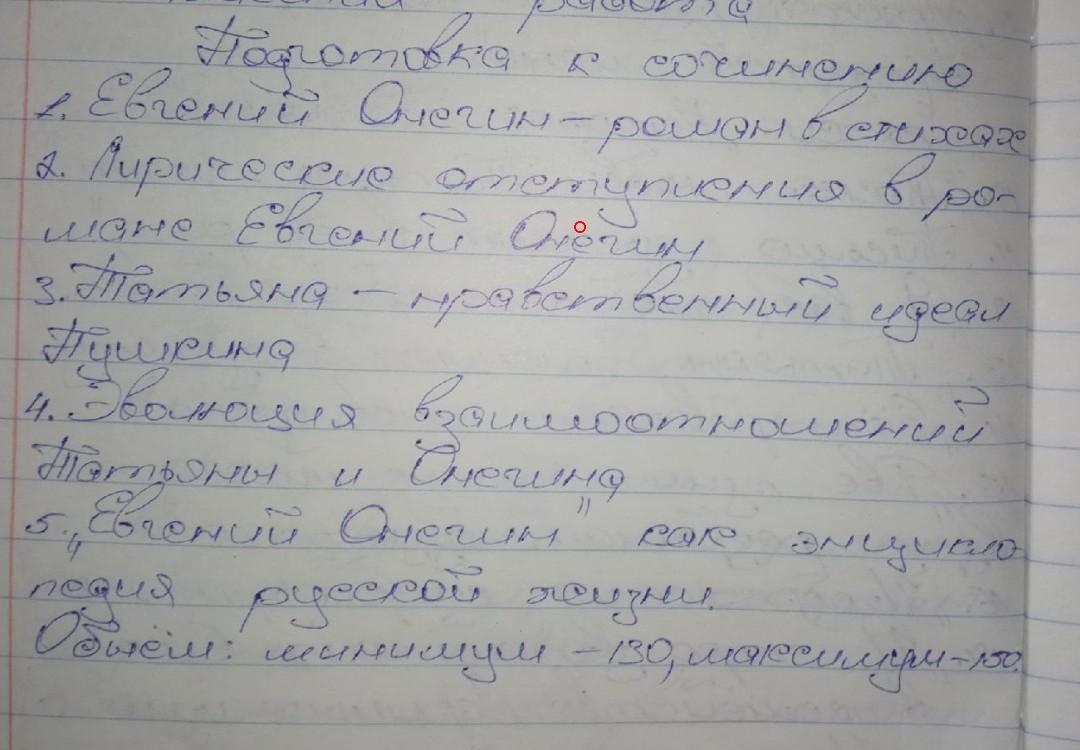 работа
Подготовка к сочинению
1. Евгений Онегин – роман в стихах
2. Лирические отступления в ро-
мане Евгений Онегин
3. Татьяна – нравственный идеал
Пушкина
4. Эволюция взаимоотношений
Татьяны и Онегина
5. „Евгений Онегин" как энцикло
педия русской жизни.
Объём: минимум – 130, максимум – 150.